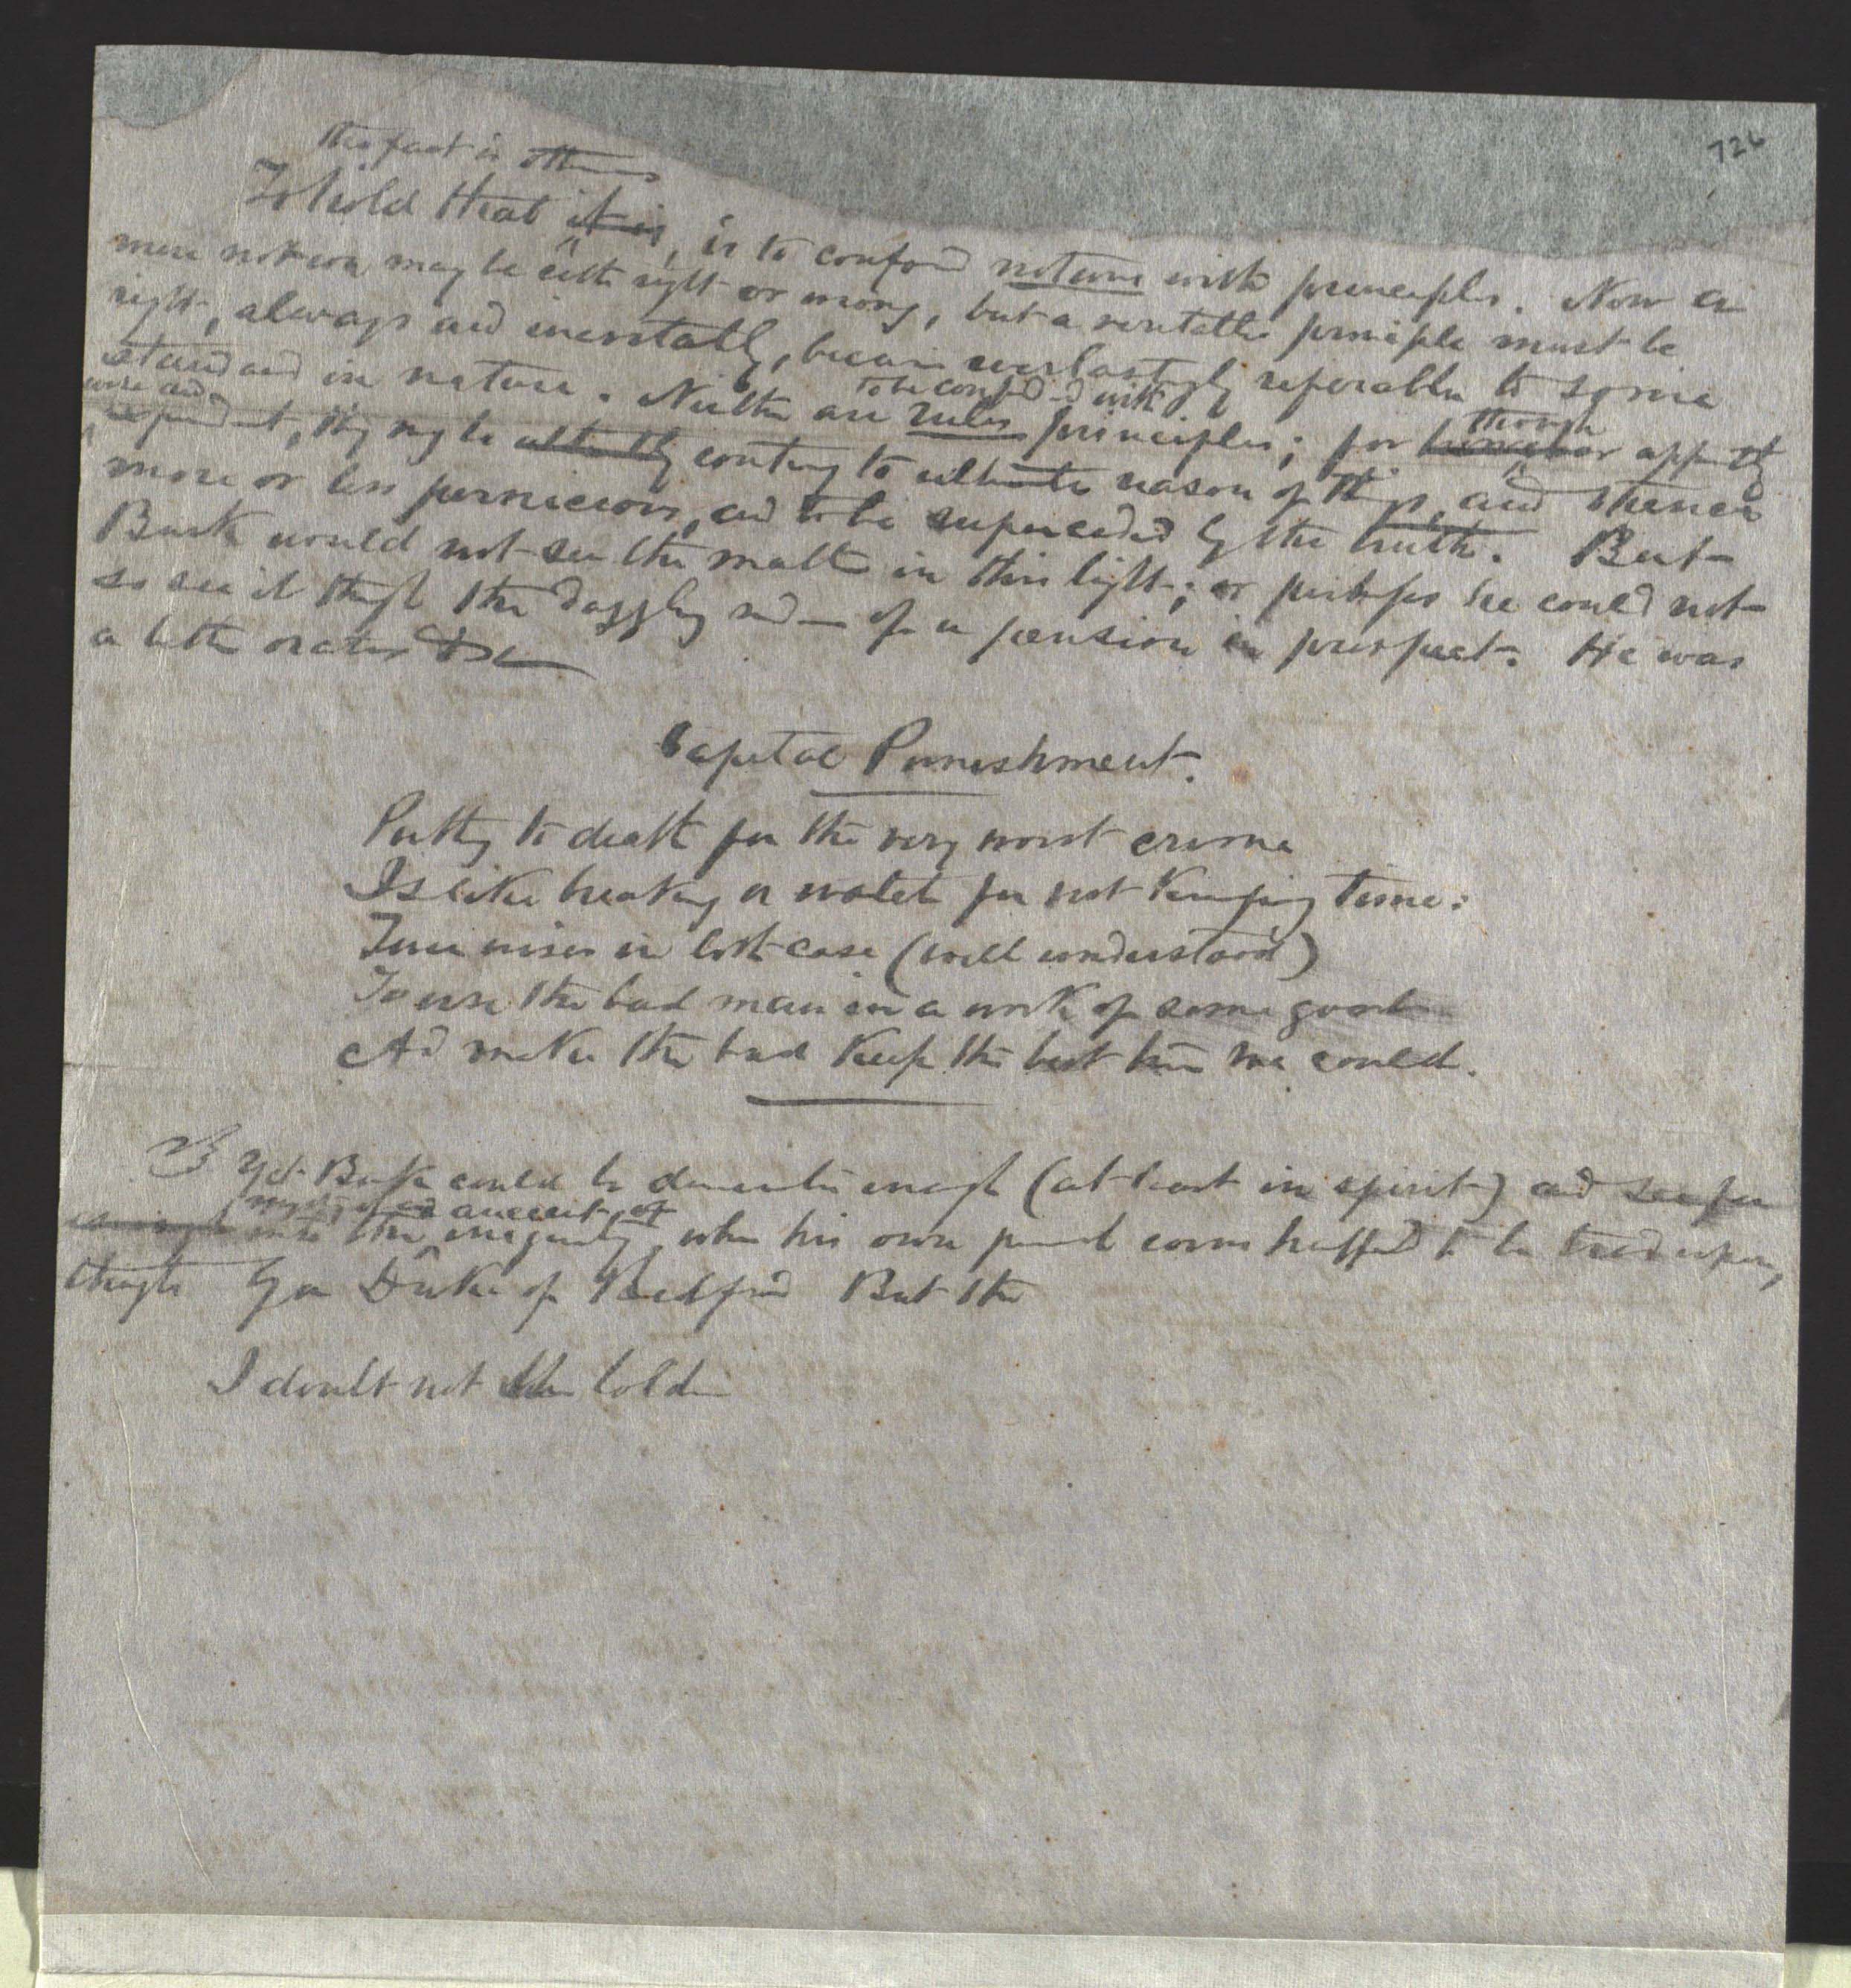 726
the fact is
To hold that it is, is to confound notions with principles. Now a
mere notion may be either right or wrong, but a veritable principle must be
right, always and inevitably, because everlastingly referable to some
to be confounded with
standard in nature. Neither are rules principles; for
though
wise and
they may be contrary to ultimate reason of things, and thence
more or less pernicious, and to be superceded by the truth. But
Burke would not see the matter in this light; or perhaps he could not
so see it through the of a pension in prospect. He was
a better orator &c
Capital Punishment.
Putting to death for the very worst crime
Is like breaking a watch for not keeping time:
Twere wiser in both case (well understood)
To use the bad man in a work of some good
And make the bad keep the best time we could.
Yet Burke could be democratic enough (at least in spirit) and see far
ancient
enough into the iniquity, when his own proud corns happened to be tread upon,
though by a Duke of Bedford But the
I doubt not the